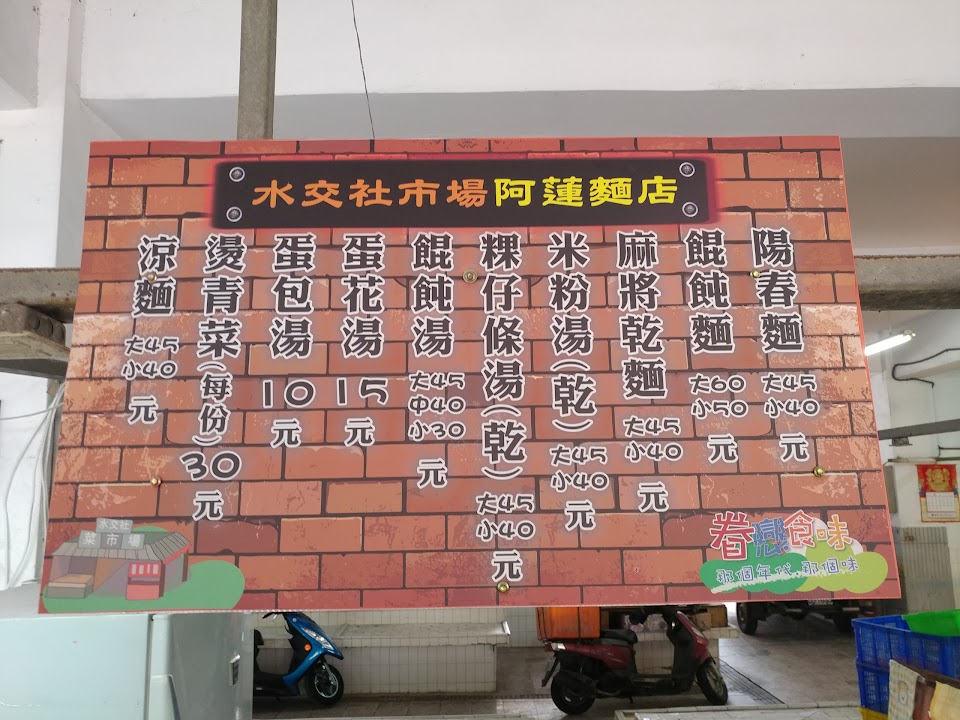 水交社市場阿蓮麵店
陽春麵 大45 小40 元
餛飩麵 大60 小50 元
麻將乾麵 大45 小40 元
米粉湯(乾) 大45 小40 元
粿仔條湯(乾) 大45 小40 元
餛飩湯 大45 中40 小30 元
蛋花湯 15 元
蛋包湯 10 元
燙青菜(每份) 30 元
涼麵 大45 小40 元
水交社
菜市場
眷戀食味
那個年代.那個味